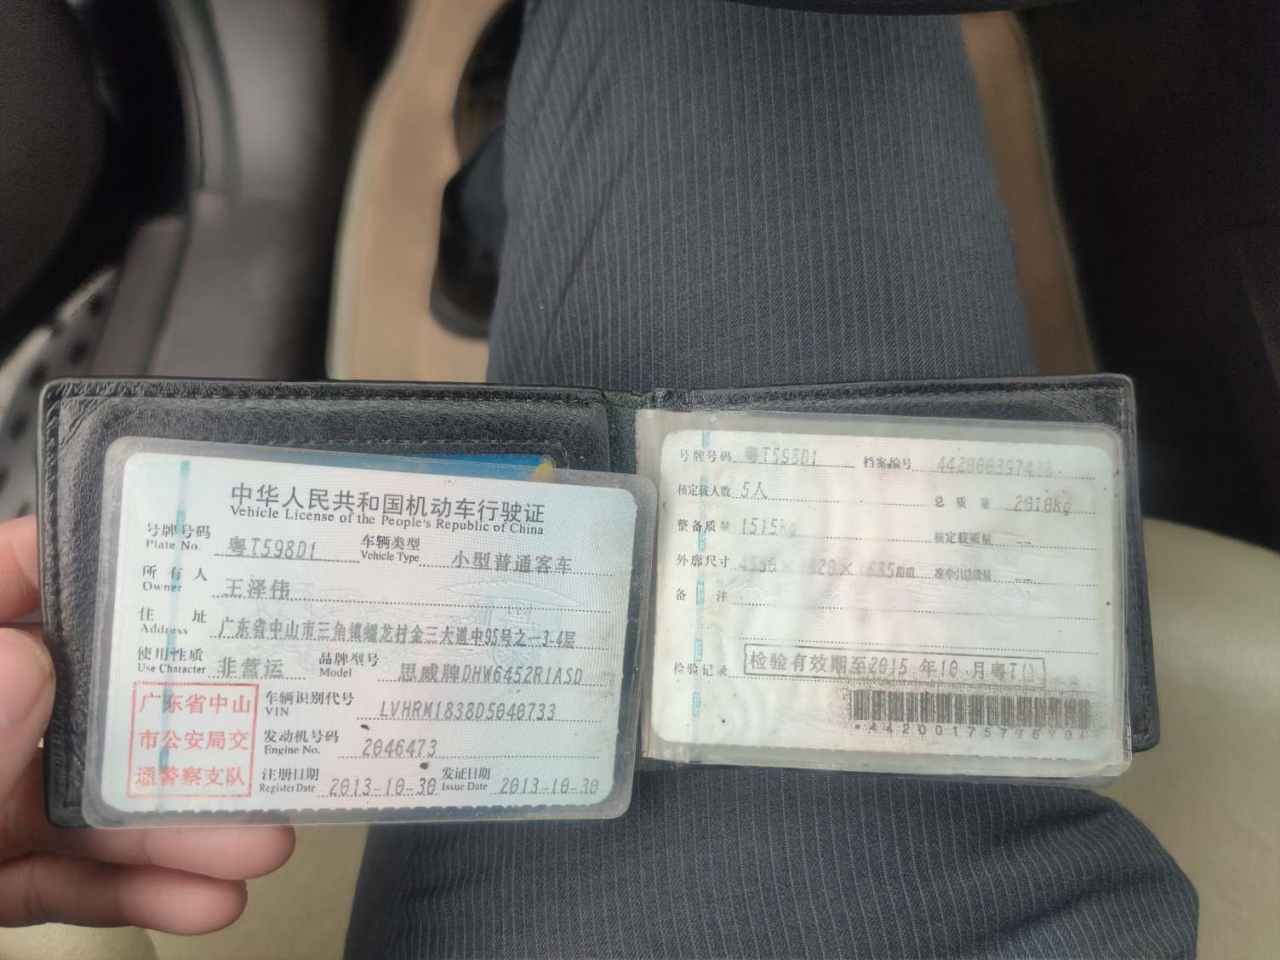 中华人民共和国机动车行驶证
Vehicle License of the People's Republic of China
号牌号码 粤T598D1 车辆类型 小型普通客车
Plate No. Vehicle Type
所有人 王泽伟
Owner
住址 广东省中山市三角镇蟠龙村金三大道中95号之一3-4层
Address
使用性质 非营运 品牌型号 思威牌DHW6452R1ASD
Use Character Model
广东省中山
市公安局交
通警察支队
车辆识别代号 LVHRM1838D5040733
VIN
发动机号码 2046473
Engine No.
注册日期 2013-10-30 发证日期 2013-10-30
Register Date Issue Date
号牌号码 粤T598D1 档案编号
核定载人数 5人 总质量 2010kg
整备质量 1515kg 核定载质量 --
外廓尺寸 准牵引总质量 --
备注
检验记录 检验有效期至2015年10月粤T()